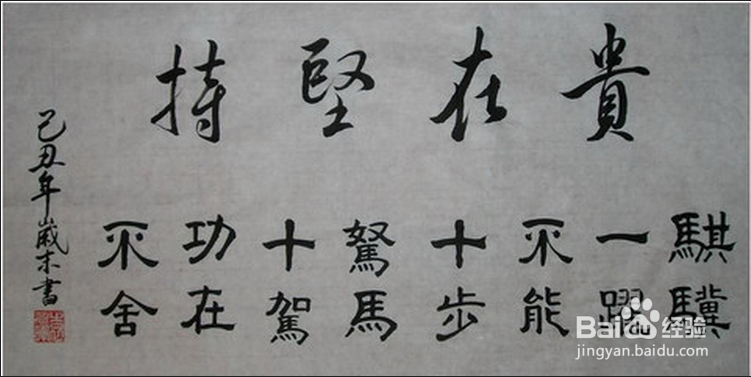 貴在堅持
騏驥
一躍
不能
十步
駑馬
十駕
功在
不舍
己丑年歲末書
Baidu经验
jingyan.baidu.com